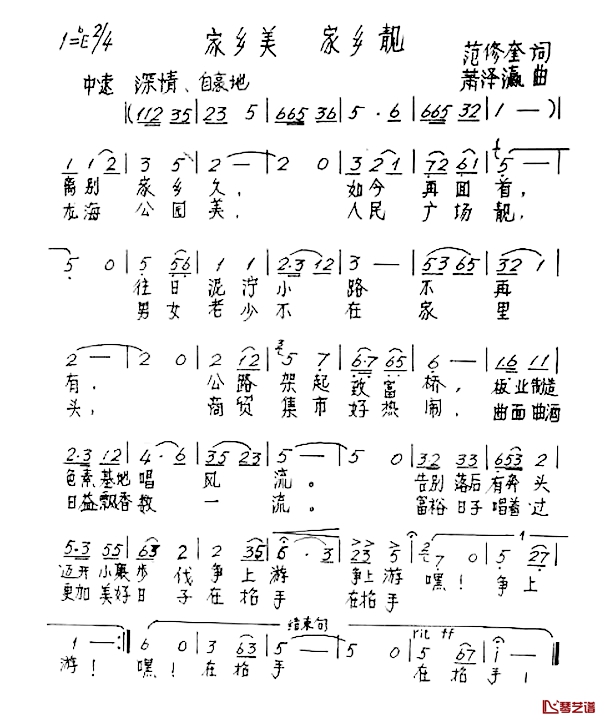 1=ᵇE 2/4 家乡美 家乡靓
范修奎 词
中速 深情、自豪地 萧泽瀛 曲
|(112 35|23 5|665 36|5 · 6|665 32|1 —)|
1 12|3 5|2 —|2 0|3 21|72 61|5 —|
离别 家乡 久， 如今 再回 首，
龙海 公园 美， 人民 广场 靓，
5 0|5 56|1 1|2·3 12|3 —|53 65|32 1|
往日 泥泞 小 路 不 再
男女 老少 不 在 家 里
2 —|2 0|2 12|5 7|6·7 65|6 —|16 11|
有， 公路 架起 致富 桥， 板业制造
头， 商贸 集市 好热 闹， 曲面曲酒
2·3 12|4 · 6|35 23|5 —|5 0|3·2 22|653 2|
色素基地 唱 风 流。 告别落后 有奔头
日益飘香 数 一 流。 富裕日子 唱着过
5·3 55|63 2|2 35|6 · 3|23 5|7 0|5 27|
迈开小康 步 伐 争上 游 争上游 嘿！ 争上
更加美好 日 子 在招 手 在招手
结束句
rit ff
1 —:|6 0|3 63|5 —|5 0|5 67|1 —|
游！ 嘿！ 在招 手 在招 手！
琴艺谱